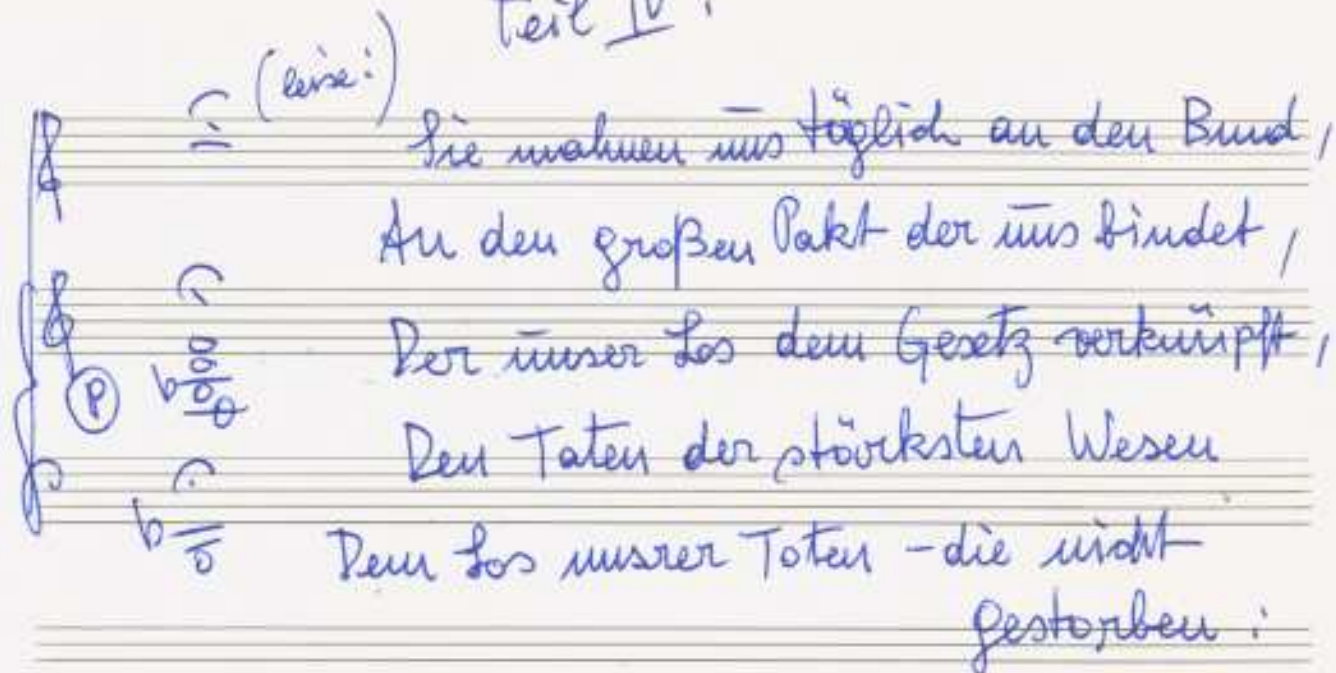 Teil IV:
(leise:)
Sie mahnen uns täglich an den Bund,
An den großen Pakt der uns bindet,
Der unser Los dem Gesetz verknüpft,
Den Taten der stärksten Wesen
Dem Los unsrer Toten - die nicht
gestorben:
P